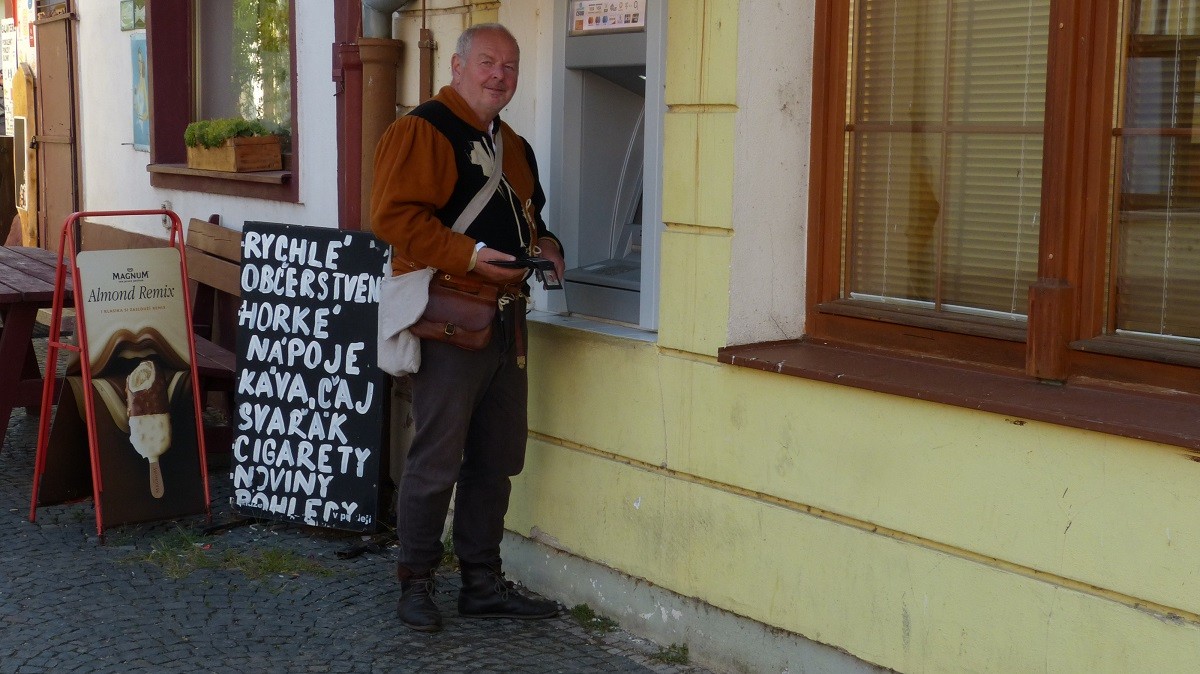 MAGNUM
Almond Remix
RYCHLÉ
OBČERSTVENÍ
HORKÉ
NÁPOJE
KÁVA, ČAJ
SVAŘÁK
CIGARETY
NOVINY
POHLEDY